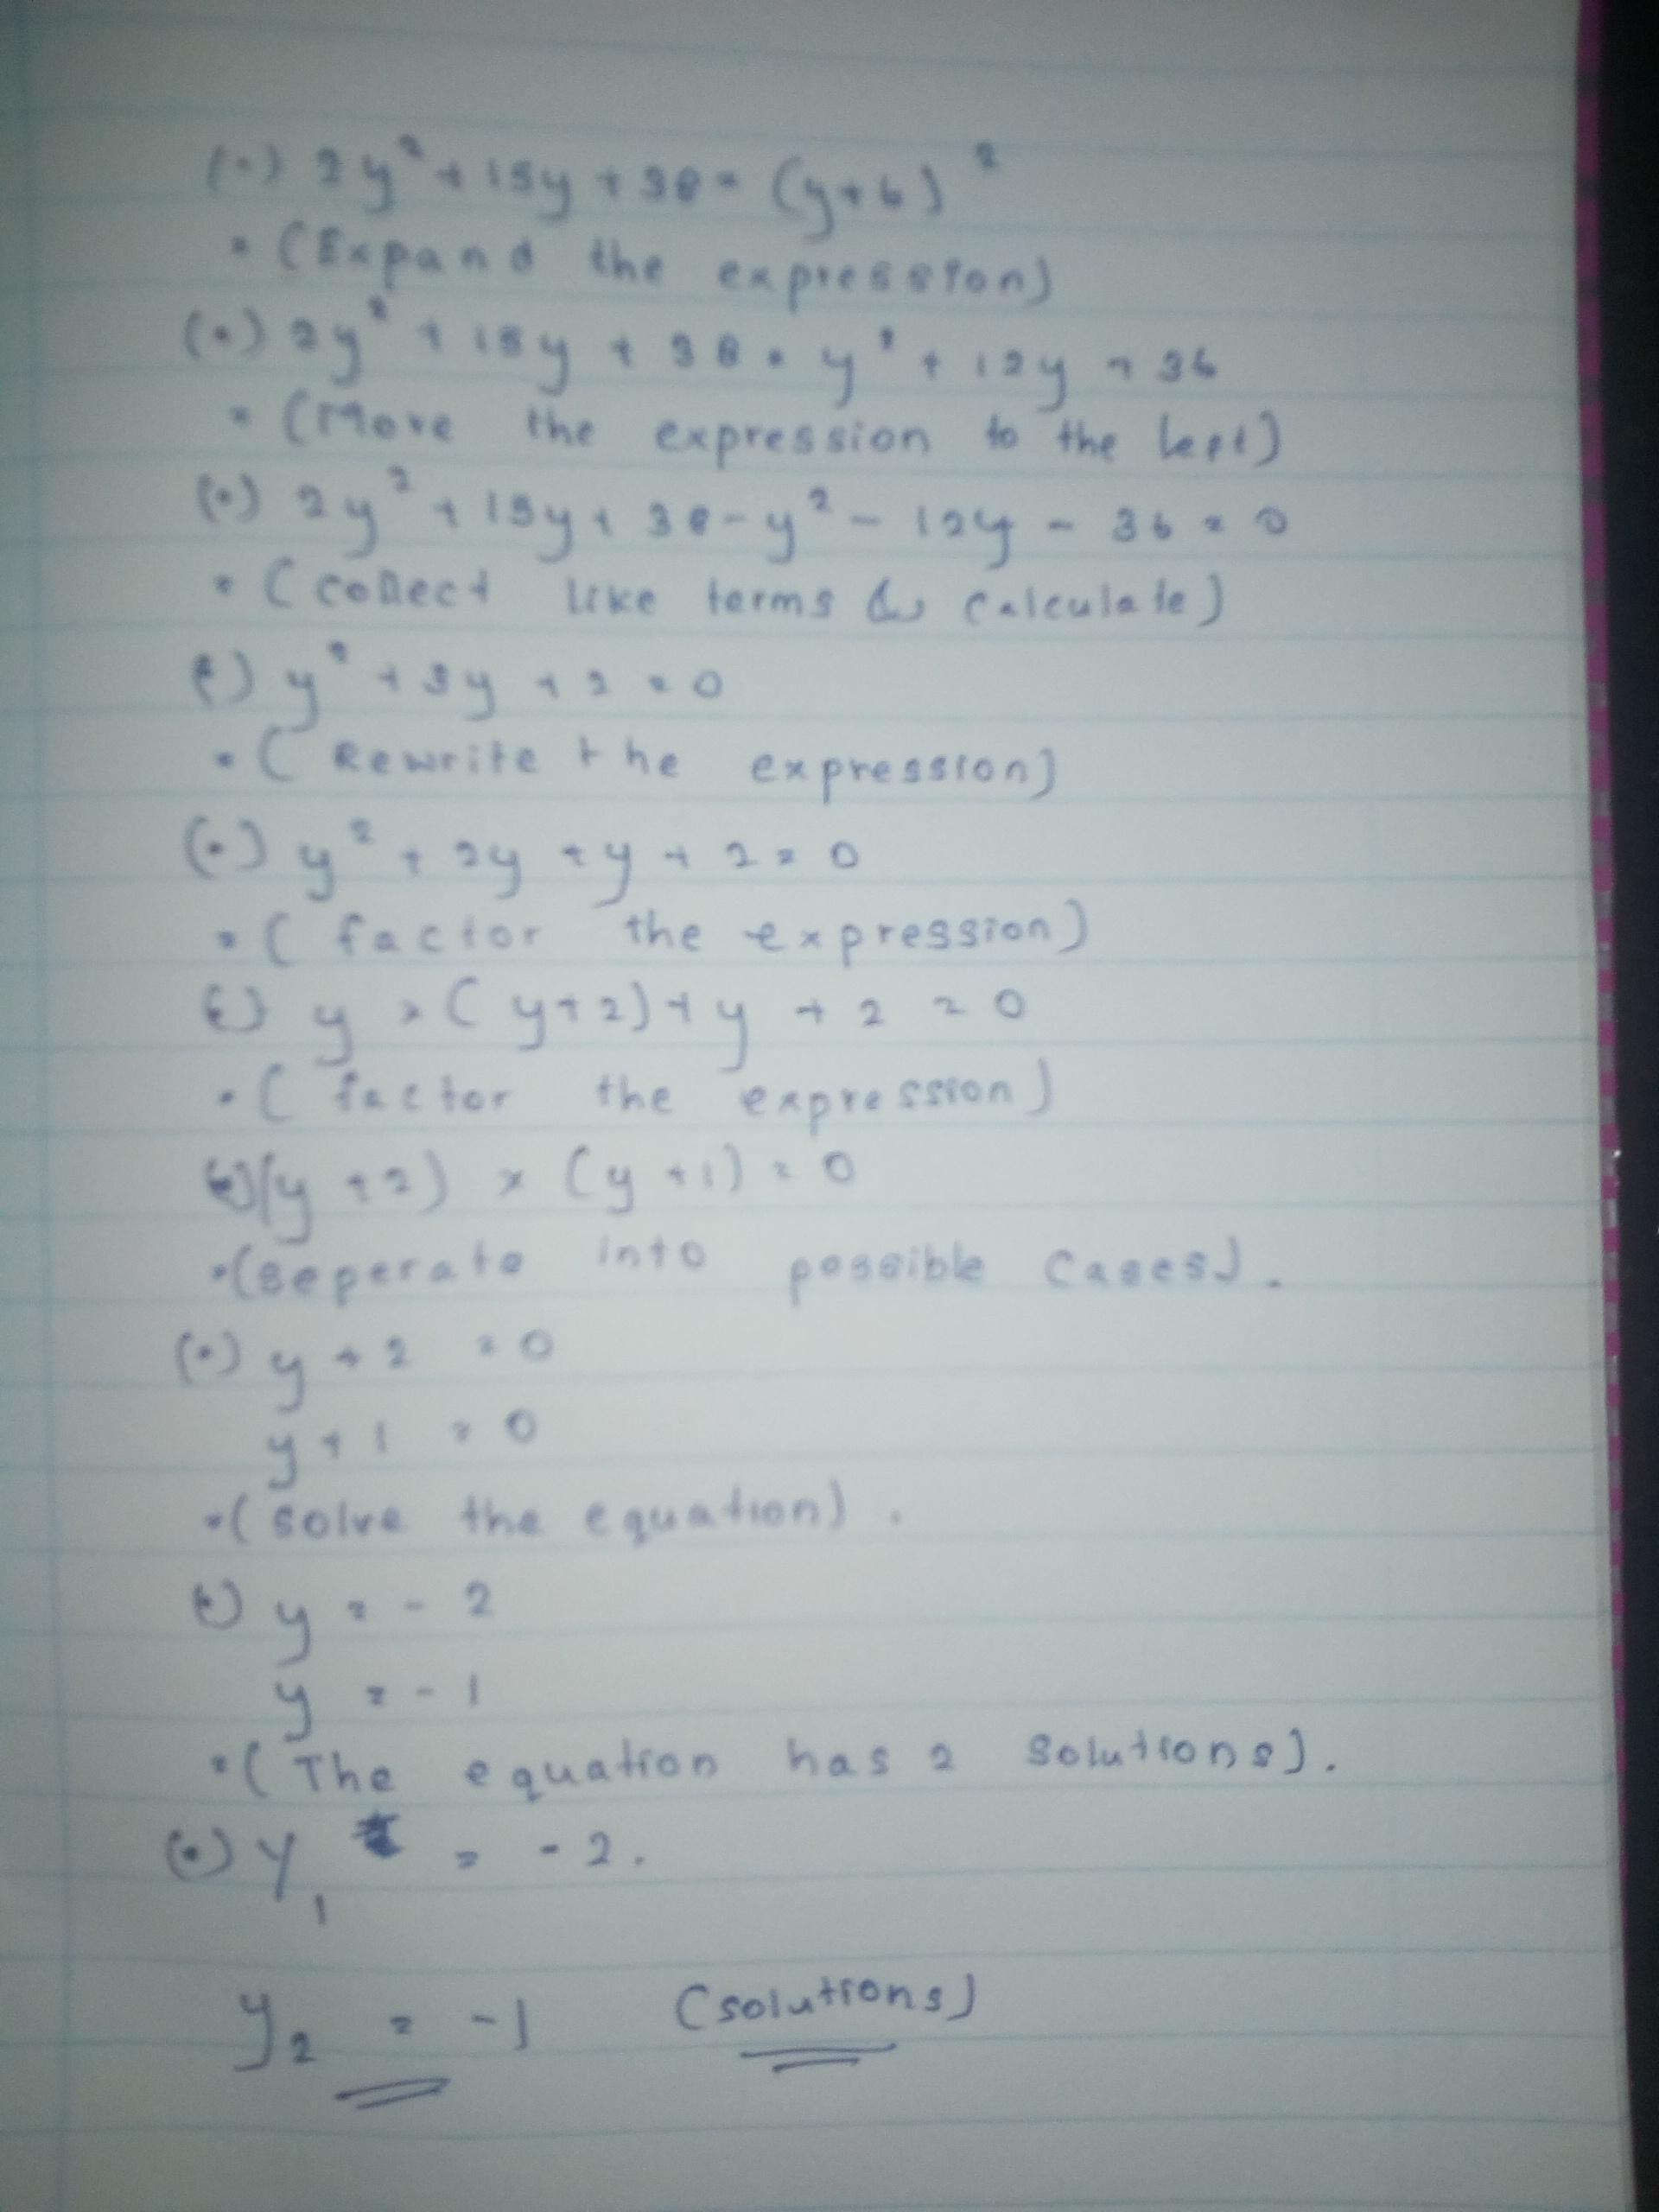 (•) 2y² + 15y + 38 = (y+6)²
• (Expand the expression)
(•) 2y² + 15y + 38 = y² + 12y + 36
• (Move the expression to the left)
(•) 2y² + 15y + 38 - y² - 12y - 36 = 0
• (collect like terms & calculate)
(•) y² + 3y + 2 = 0
• (Rewrite the expression)
(•) y² + 2y + y + 2 = 0
• (factor the expression)
(•) y × (y+2) + y + 2 = 0
• (factor the expression)
(•) (y +2) × (y +1) = 0
• (seperate into possible cases).
(•) y + 2 = 0
y + 1 = 0
• (solve the equation).
(•) y = - 2
y = - 1
• (The equation has 2 solutions).
(•) y₁ = - 2.
y₂ = -1 (solutions)